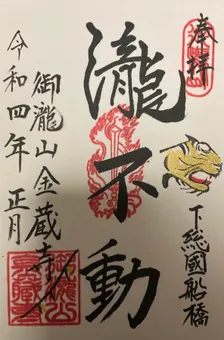 奉拝
下総國船橋
瀧不動
御瀧山金蔵寺
令和四年 正月